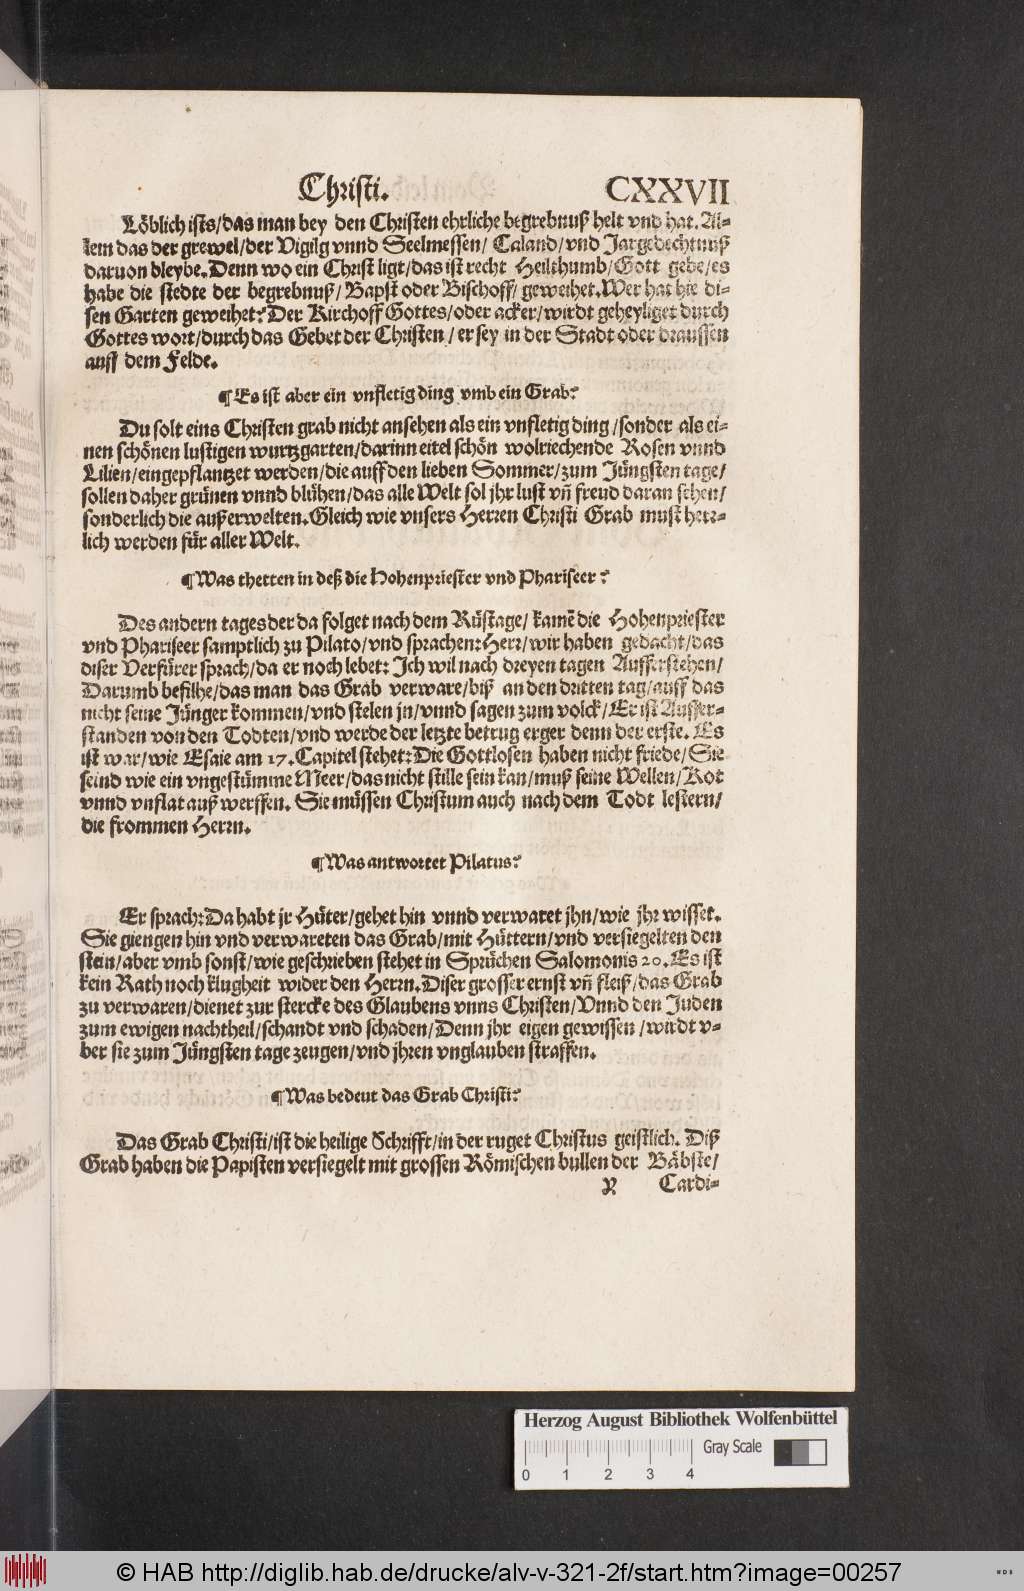 Christi. CXXVII
Löblich ists/das man bey den Christen ehrliche begrebnuß helt vnd hat. Al-
lein das der grewel/der Vigilg vnnd Seelmessen/ Caland/vnd Jargedechtnuß
daruon bleybe. Denn wo ein Christ ligt/das ist recht Heilthumb/Gott gebe/es
habe die stedte der begrebnuß/Bapst oder Bischoff/ geweihet. Wer hat hie di-
sen Garten geweihet? Der Kirchoff Gottes/oder acker/wirdt geheyliget durch
Gottes wort/durch das Gebet der Christen/ er sey in der Stadt oder draussen
auff dem Felde.
¶ Es ist aber ein vnfletig ding vmb ein Grab?
Du solt eins Christen grab nicht ansehen als ein vnfletig ding/sonder als ei-
nen schönen lustigen wurtzgarten/darinn eitel schön wolriechende Rosen vnnd
Lilien/eingepflantzet werden/die auff den lieben Sommer/zum Jüngsten tage/
sollen daher grünen vnnd blühen/das alle Welt sol jhr lust vñ freud daran sehen/
sonderlich die außerwelten. Gleich wie vnsers Herren Christi Grab must herr-
lich werden für aller Welt.
¶ Was thetten in deß die Hohenpriester vnd Phariseer?
Des andern tages der da folget nach dem Rüstage/ kamē die Hohenpriester
vnd Phariseer samptlich zu Pilato/vnd sprachen: Herr/wir haben gedacht/das
diser Verfürer sprach/da er noch lebet: Ich wil nach dreyen tagen Aufferstehen/
Darumb befilhe/das man das Grab verware/biß an den dritten tag/auff das
nicht seine Jünger kommen/vnd stelen jn/vnnd sagen zum volck/Er ist Auffer-
standen von den Todten/vnd werde der letzte betrug erger denn der erste. Es
ist war/wie Esaie am 17. Capitel stehet: Die Gottlosen haben nicht friede/Sie
seind wie ein vngestümme Meer/das nicht stille sein kan/muß seine Wellen/Kot
vnnd vnflat auß werffen. Sie müssen Christum auch nach dem Todt lestern/
die frommen Herrn.
¶ Was antwortet Pilatus?
Er sprach: Da habt jr Hüter/gehet hin vnnd verwaret jhn/wie jhr wisset.
Sie giengen hin vnd verwareten das Grab/mit Hüttern/vnd versiegelten den
stein/aber vmb sonst/wie geschrieben stehet in Sprüchen Salomonis 20. Es ist
kein Rath noch klugheit wider den Herrn. Diser grosser ernst vñ fleiß/das Grab
zu verwaren/dienet zur stercke des Glaubens vnns Christen/Vnnd den Juden
zum ewigen nachtheil/schandt vnd schaden/Denn jhr eigen gewissen/wirdt v-
ber sie zum Jüngsten tage zeugen/vnd jhren vnglauben straffen.
¶ Was bedeut das Grab Christi?
Das Grab Christi/ist die heilige Schrifft/in der ruget Christus geistlich. Diß
Grab haben die Papisten versiegelt mit grossen Römischen bullen der Bäbste/
Cardi-
Herzog August Bibliothek Wolfenbüttel
Gray Scale
0 1 2 3 4
© HAB http://diglib.hab.de/drucke/alv-v-321-2f/start.htm?image=00257